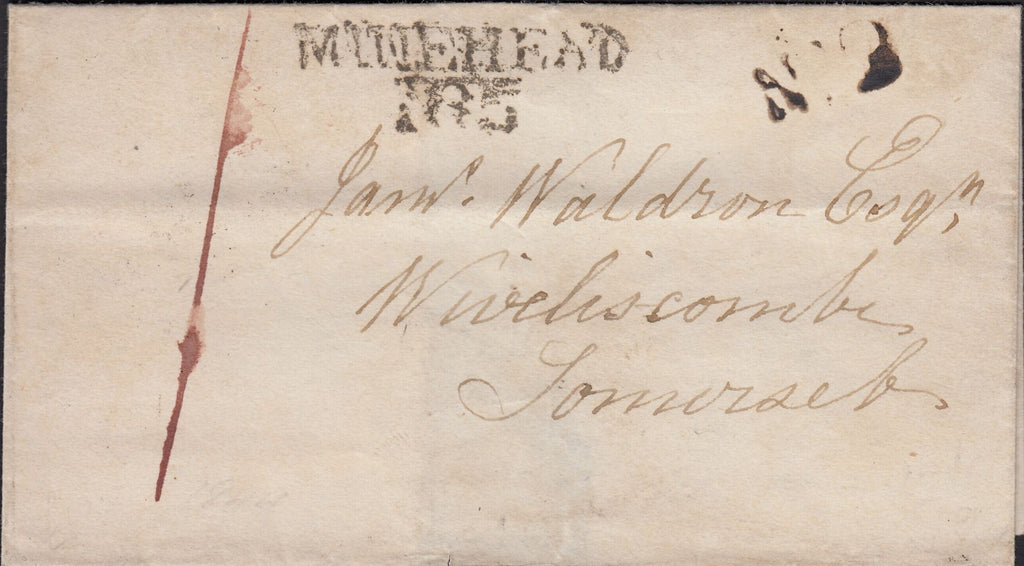 MINEHEAD
No 5
Jas. Waldron Esqr,
Wiveliscombe
Somerset